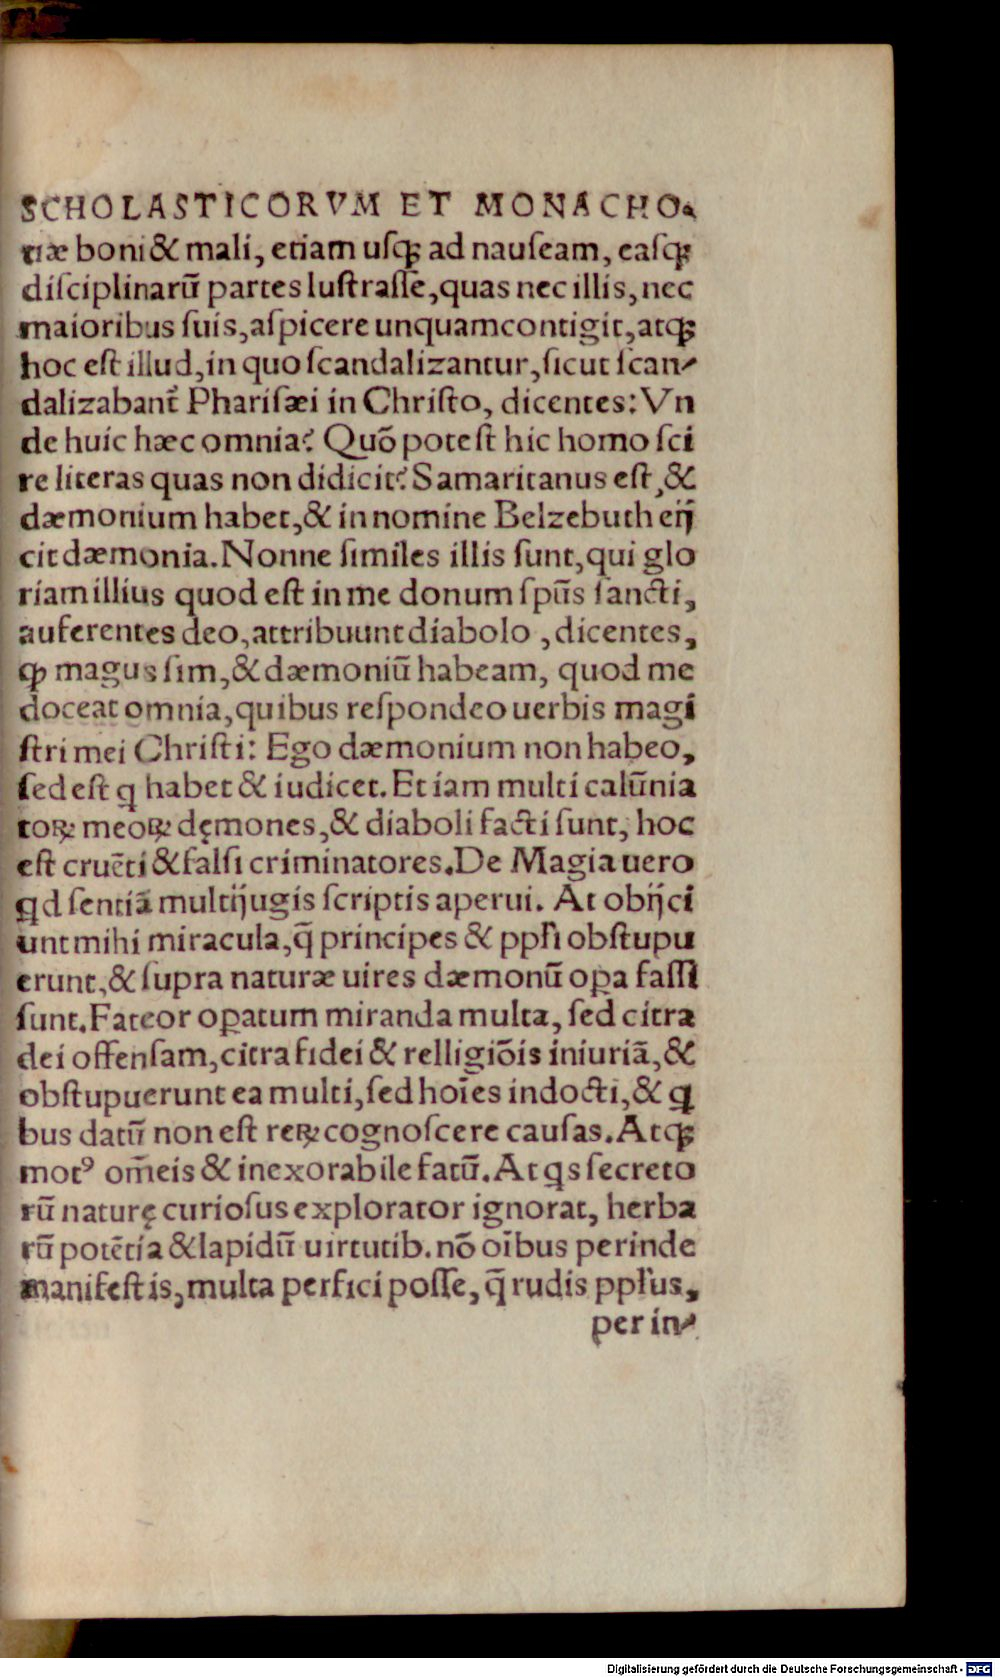 SCHOLASTICORVM ET MONACHO.
tiæ boni & mali, etiam uſqꝫ ad nauſeam, eaſqꝫ
diſciplinarū partes luſtraſſe, quas nec illis, nec
maioribus ſuis, aſpicere unquam contigit, atqꝫ
hoc eſt illud, in quo ſcandalizantur, ſicut ſcan-
dalizabant᷑ Phariſæi in Chriſto, dicentes: Vn
de huic hæc omnia? Quō poteſt hic homo ſci
re literas quas non didicit? Samaritanus eſt, &
dæmonium habet, & in nomine Belzebuth eij
cit dæmonia. Nonne ſimiles illis ſunt, qui glo
riam illius quod eſt in me donum ſpūs ſancti,
auferentes deo, attribuunt diabolo, dicentes,
ꝙ magus ſim, & dæmoniū habeam, quod me
doceat omnia, quibus reſpondeo uerbis magi
ſtri mei Chriſti: Ego dæmonium non habeo,
ſed eſt ꝗ habet & iudicet. Et iam multi calūnia
toꝝ meoꝝ dęmones, & diaboli facti ſunt, hoc
eſt cruēti & falſi criminatores. De Magia uero
ꝗd ſentiā multijugis ſcriptis aperui. At obijci
unt mihi miracula, q̄ principes & ppl̓i obſtupu
erunt, & ſupra naturæ uires dæmonū oꝑa faſſi
ſunt. Fateor oꝑatum miranda multa, ſed citra
dei offenſam, citra fidei & relligiōis iniuriā, &
obſtupuerunt ea multi, ſed hoīes indocti, & ꝗ
bus datū non eſt reꝝ cognoſcere cauſas. Atqꝫ
motꝰ om̄eis & inexorabile fatū. At ꝗs ſecreto
rū naturę curioſus explorator ignorat, herba
rū potētia & lapidū uirtutib. nō oībus perinde
manifeſtis, multa perfici poſſe, q̄ rudis ppl̓us,
per in-
Digitalisierung gefördert durch die Deutsche Forschungsgemeinschaft - DFG